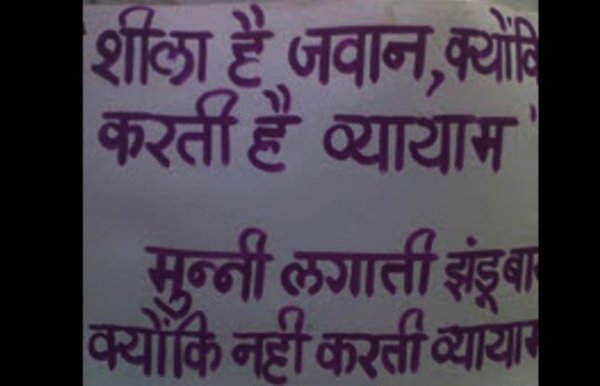 'शीला है जवान, क्योंकि
करती है व्यायाम'
मुन्नी लगाती झंडू बा
क्योंकि नही करती व्यायाम